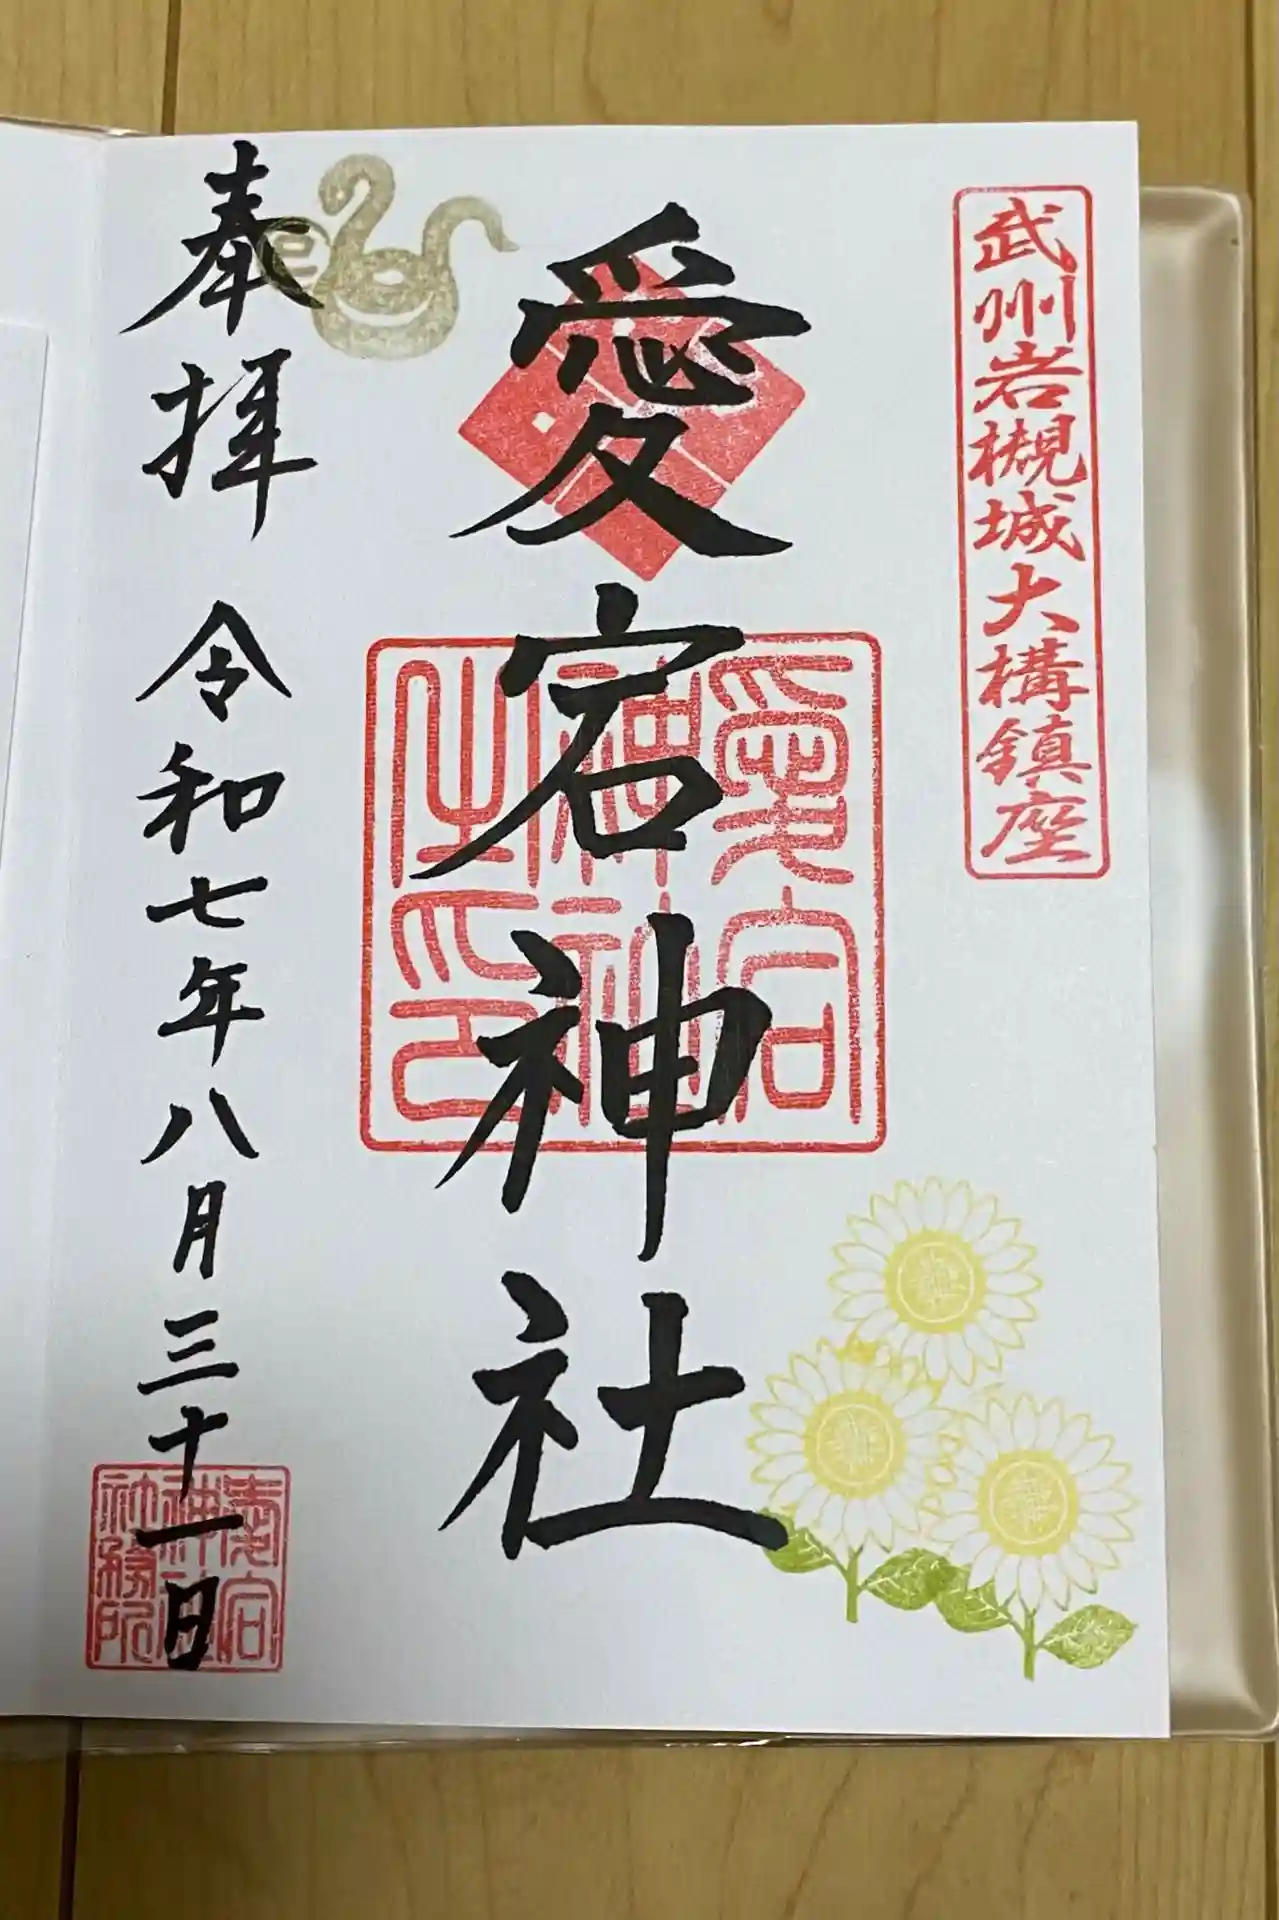 武州岩槻城大構鎮座
愛宕神社
愛宕
神社
之印
奉拝
令和七年八月三十一日
巳
愛宕
神社
社務所